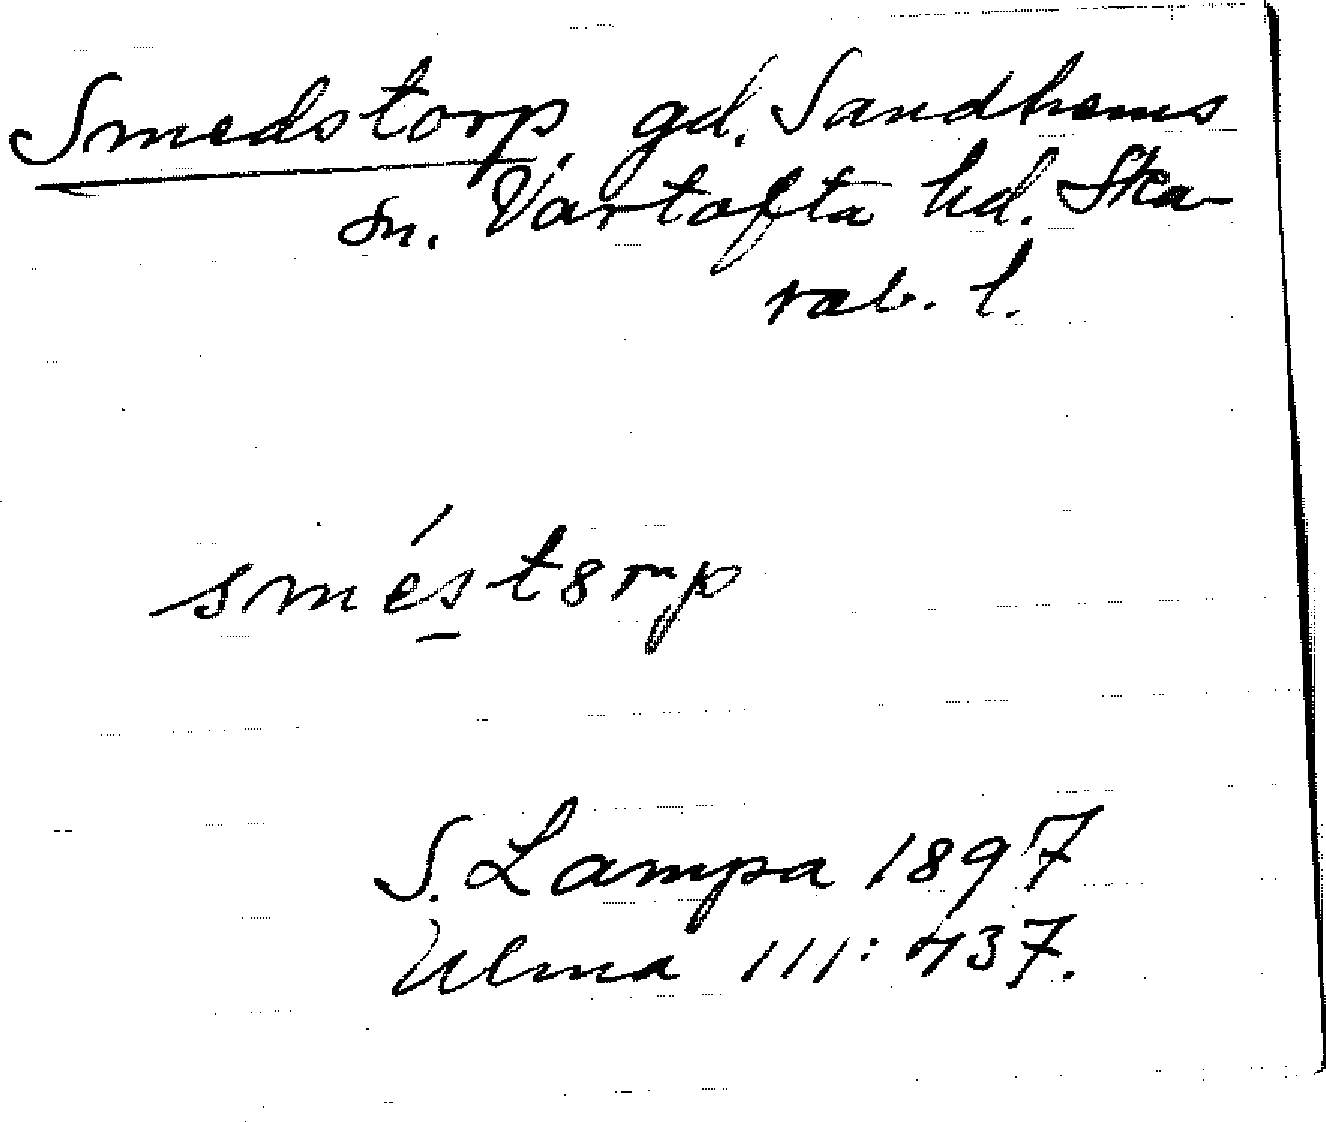 Smedstorp, gd. Sandhems
sn. Vartofta hd. Ska-
rab. l.
sme´s̲t8rp
S. Lampa 1897
Ulma 111: 437.